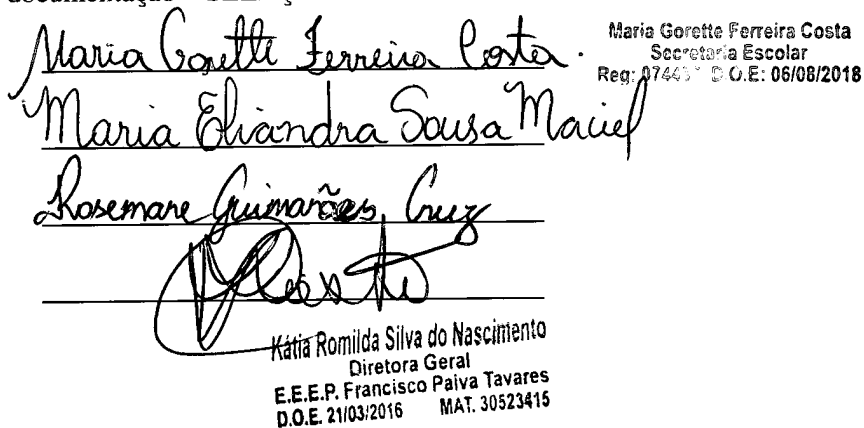 Maria Gorette Ferreira Costa.
Maria Gorette Ferreira Costa
Secretaria Escolar
Reg: D.O.E: 06/08/2018
Maria Eliandra Sousa Maciel
Rosemare Guimarães Cruz
Kátia Romilda Silva do Nascimento
Diretora Geral
E.E.E.P. Francisco Paiva Tavares
D.O.E. 21/03/2016 MAT. 30523415